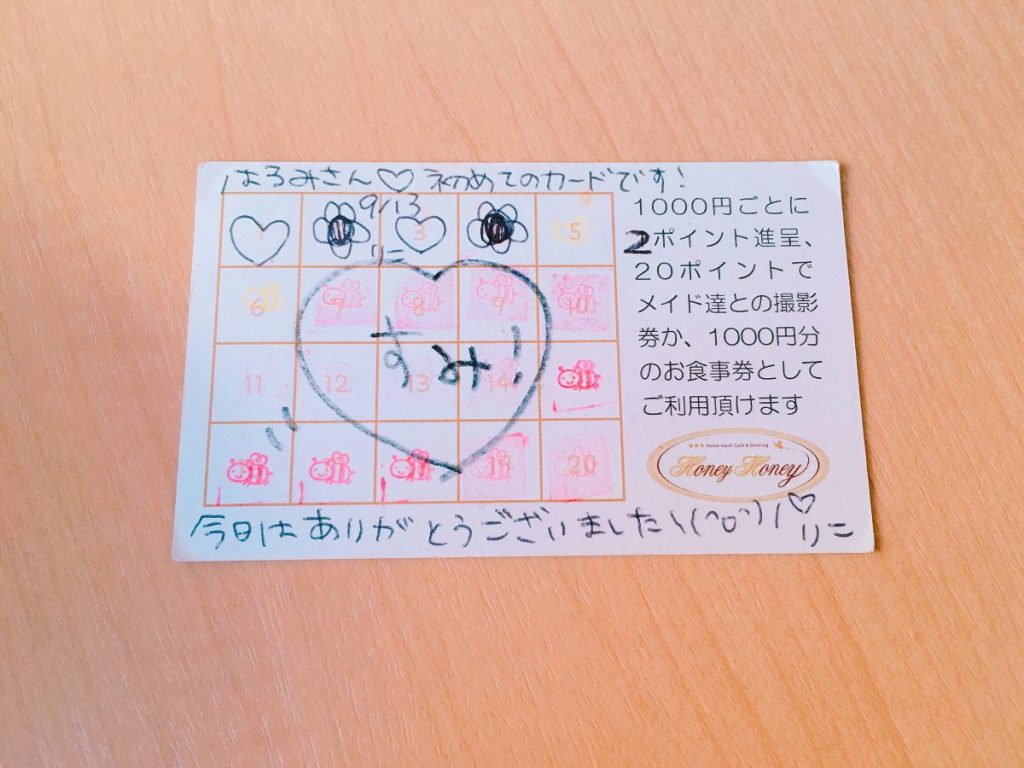 はろみさん♡初めてのカードです!
9/13
1 3 5
リニ
6 7 8 9 10
11 12 13 14 11
すみ!
19 20
1000円ごとに
2ポイント進呈、
20ポイントで
メイド達との撮影
券か、1000円分
のお食事券として
ご利用頂けます
Home Maid Cafe & Dining
Honey Honey
今日はありがとうございました\(^o^)/♡
リニ